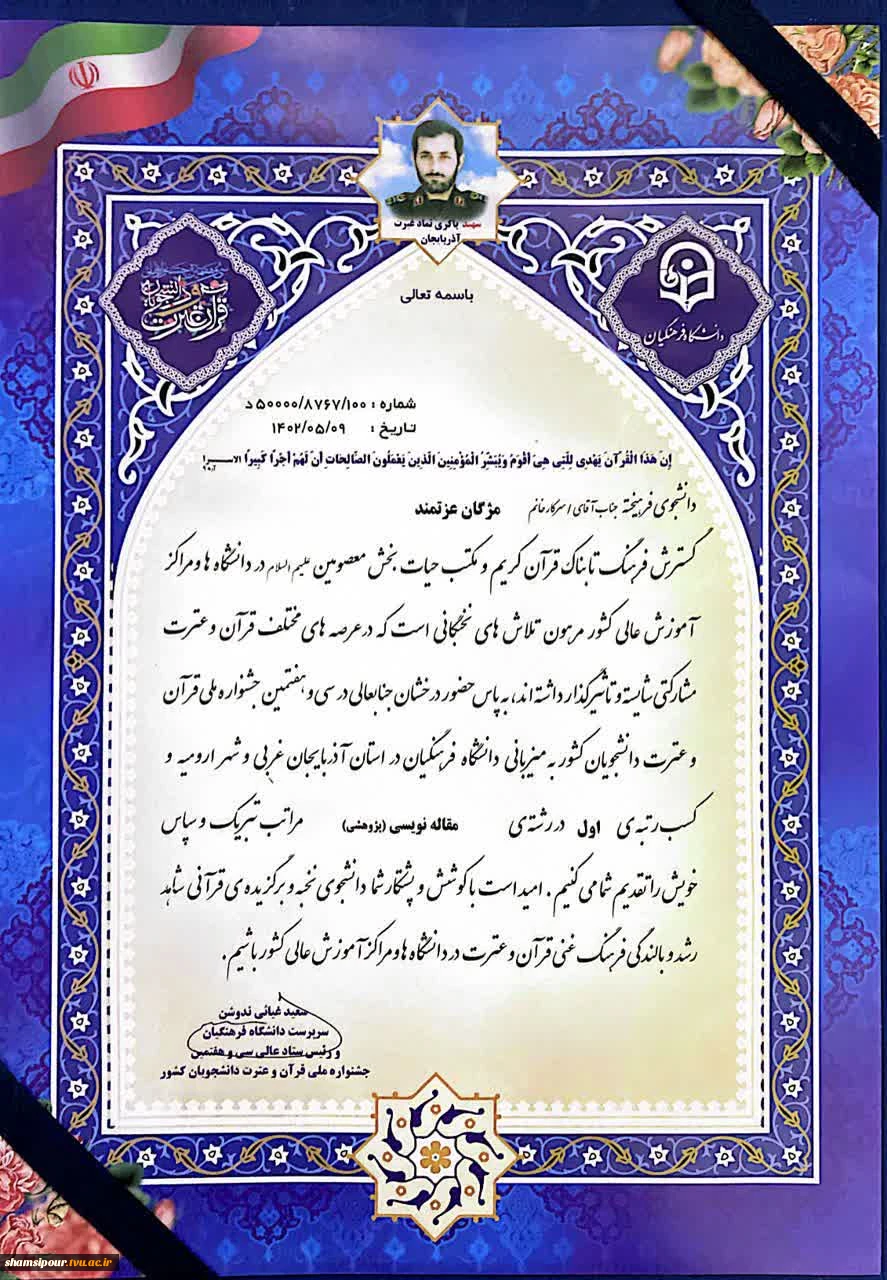 شهید باکری نماد غیرت
آذربایجان
باسمه تعالی
قرآن و عترت
دانشگاه فرهنگیان
شماره : ۵۰۰۰۰/۸۷۶۷/۱۰۰ د
تاریخ : ۱۴۰۲/۰۵/۰۹
إِنَّ هَذَا الْقُرْآنَ يَهْدِي لِلَّتِي هِيَ أَقْوَمُ وَيُبَشِّرُ الْمُؤْمِنِينَ الَّذِينَ يَعْمَلُونَ الصَّالِحَاتِ أَنَّ لَهُمْ أَجْرًا كَبِيرًا الاسراء
دانشجوی فرهیخته جناب آقای / سرکار خانم مژگان عزتمند
گسترش فرهنگ تابناک قرآن کریم و مکتب حیات بخش معصومین علیهم السلام در دانشگاه ها و مراکز
آموزش عالی کشور مرهون تلاش های نخبگانی است که در عرصه های مختلف قرآن و عترت
مشارکتی شایسته و تأثیرگذار داشته اند، به پاس حضور درخشان جنابعالی در سی و هفتمین جشنواره ملی قرآن
و عترت دانشجویان کشور به میزبانی دانشگاه فرهنگیان در استان آذربایجان غربی و شهر ارومیه و
کسب رتبه ی اول در رشته ی مقاله نویسی (پژوهشی) مراتب تبریک و سپاس
خویش را تقدیم شما می کنیم . امید است با کوشش و پشتکار شما دانشجوی نخبه و برگزیده ی قرآنی شاهد
رشد و بالندگی فرهنگ غنی قرآن و عترت در دانشگاه ها و مراکز آموزش عالی کشور باشیم .
سعید غیاثی ندوشن
سرپرست دانشگاه فرهنگیان
و رئیس ستاد عالی سی و هفتمین
جشنواره ملی قرآن و عترت دانشجویان کشور
shamsipour.tvu.ac.ir